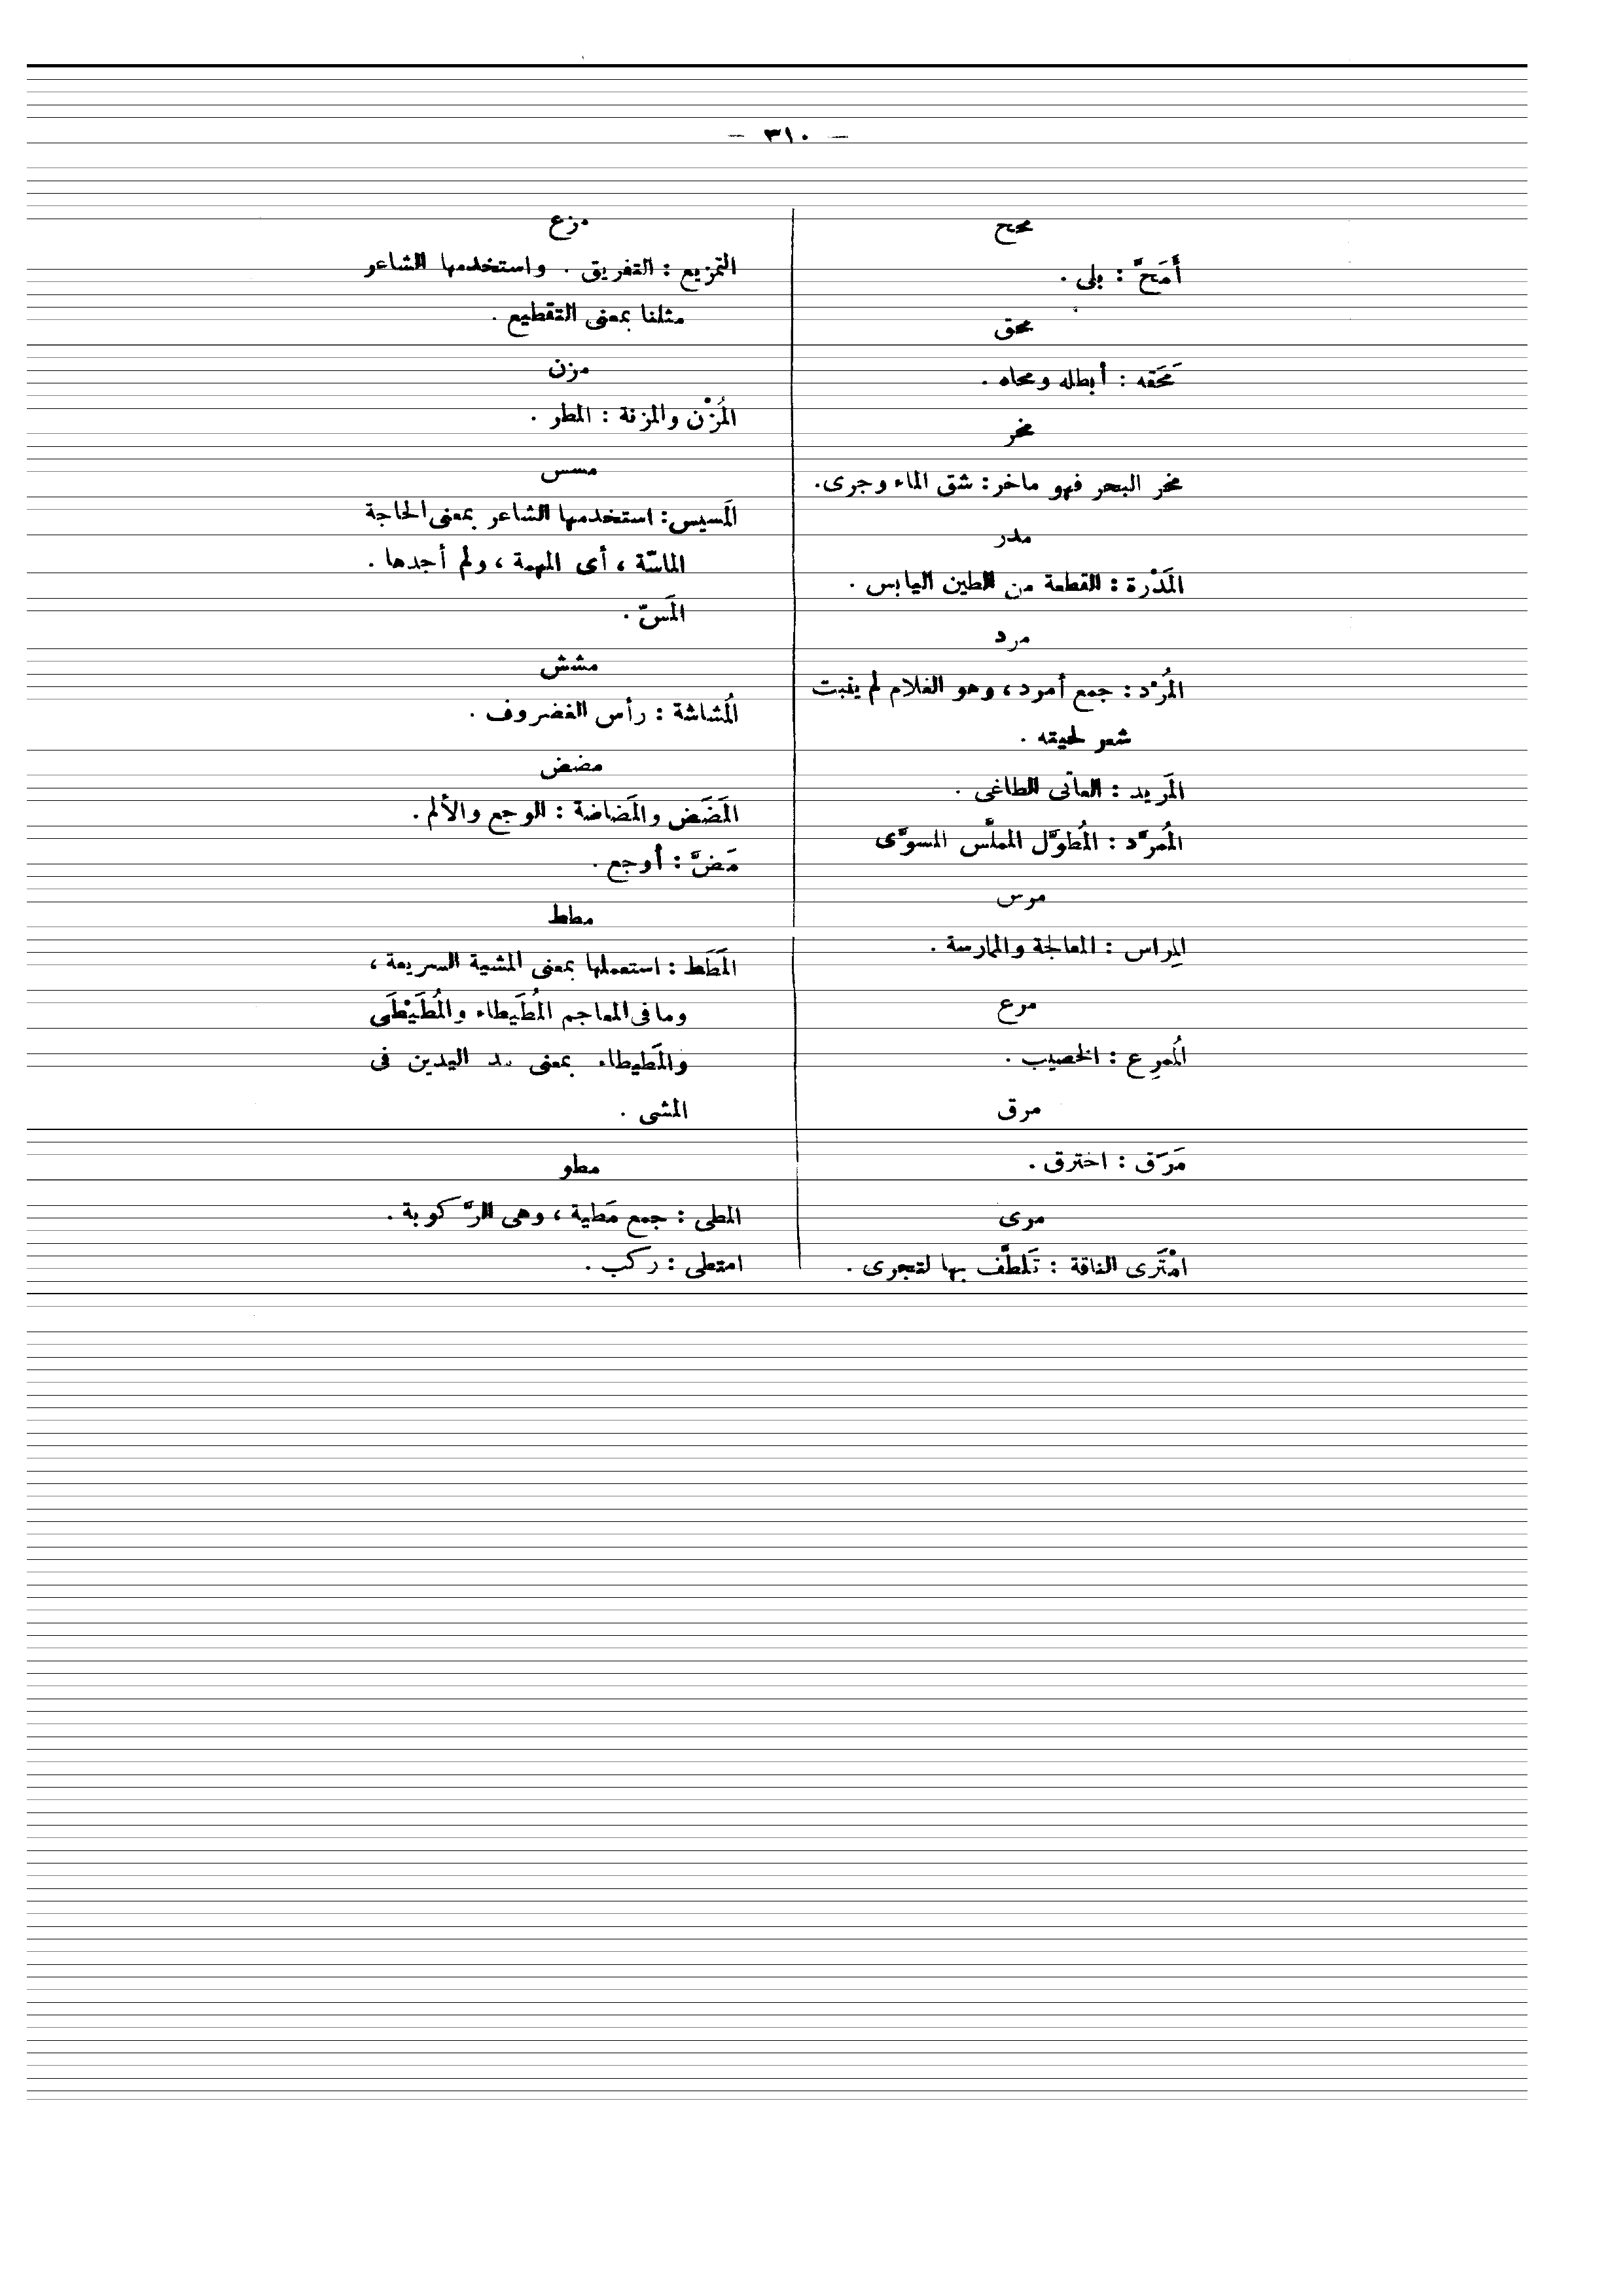 — ٣١٠ —
محح
أَمَحَّ : بلى .
محق
مَحَقه : أبطله ومحاه .
مخر
مخر البحر فهو ماخر : شق الماء وجرى .
مدر
المَدْرة : القطعة من الطين اليابس .
مرد
المُرْد : جمع أمرد ، وهو الغلام لم ينبت
شعر لحيته .
المَريد : العاتى الطاغى .
المُمرَّد : المُطوَّل المملّس المسوَّى
مرس
المِراس : المعالجة والممارسة .
مرع
المُمرِع : الخصيب .
مرق
مَرَق : اخترق .
مرى
امْتَرى الناقة : تَلطَّف بها لتجرى .
مزع
التمزيع : التفريق . واستخدمها الشاعر
مثلنا بمعنى التقطيع .
مزن
المُزْن والمزنة : المطر .
مسس
المَسيس : استخدمها الشاعر بمعنى الحاجة
الماسّة ، أى المهمة ، ولم أجدها .
المَسّ .
مشش
المُشاشة : رأس الغضروف .
مضض
المَضَض والمَضاضة : الوجع والألم .
مَضَّ : أوجع .
مطط
المَطَط : استعملها بمعنى المشية السريعة ،
وما فى المعاجم المُطَيطاء والمُطَيْطَى
والمَطيطاء بمعنى مد اليدين فى
المشى .
مطو
المطى : جمع مَطية ، وهى الرَّكوبة .
امتطى : ركب .